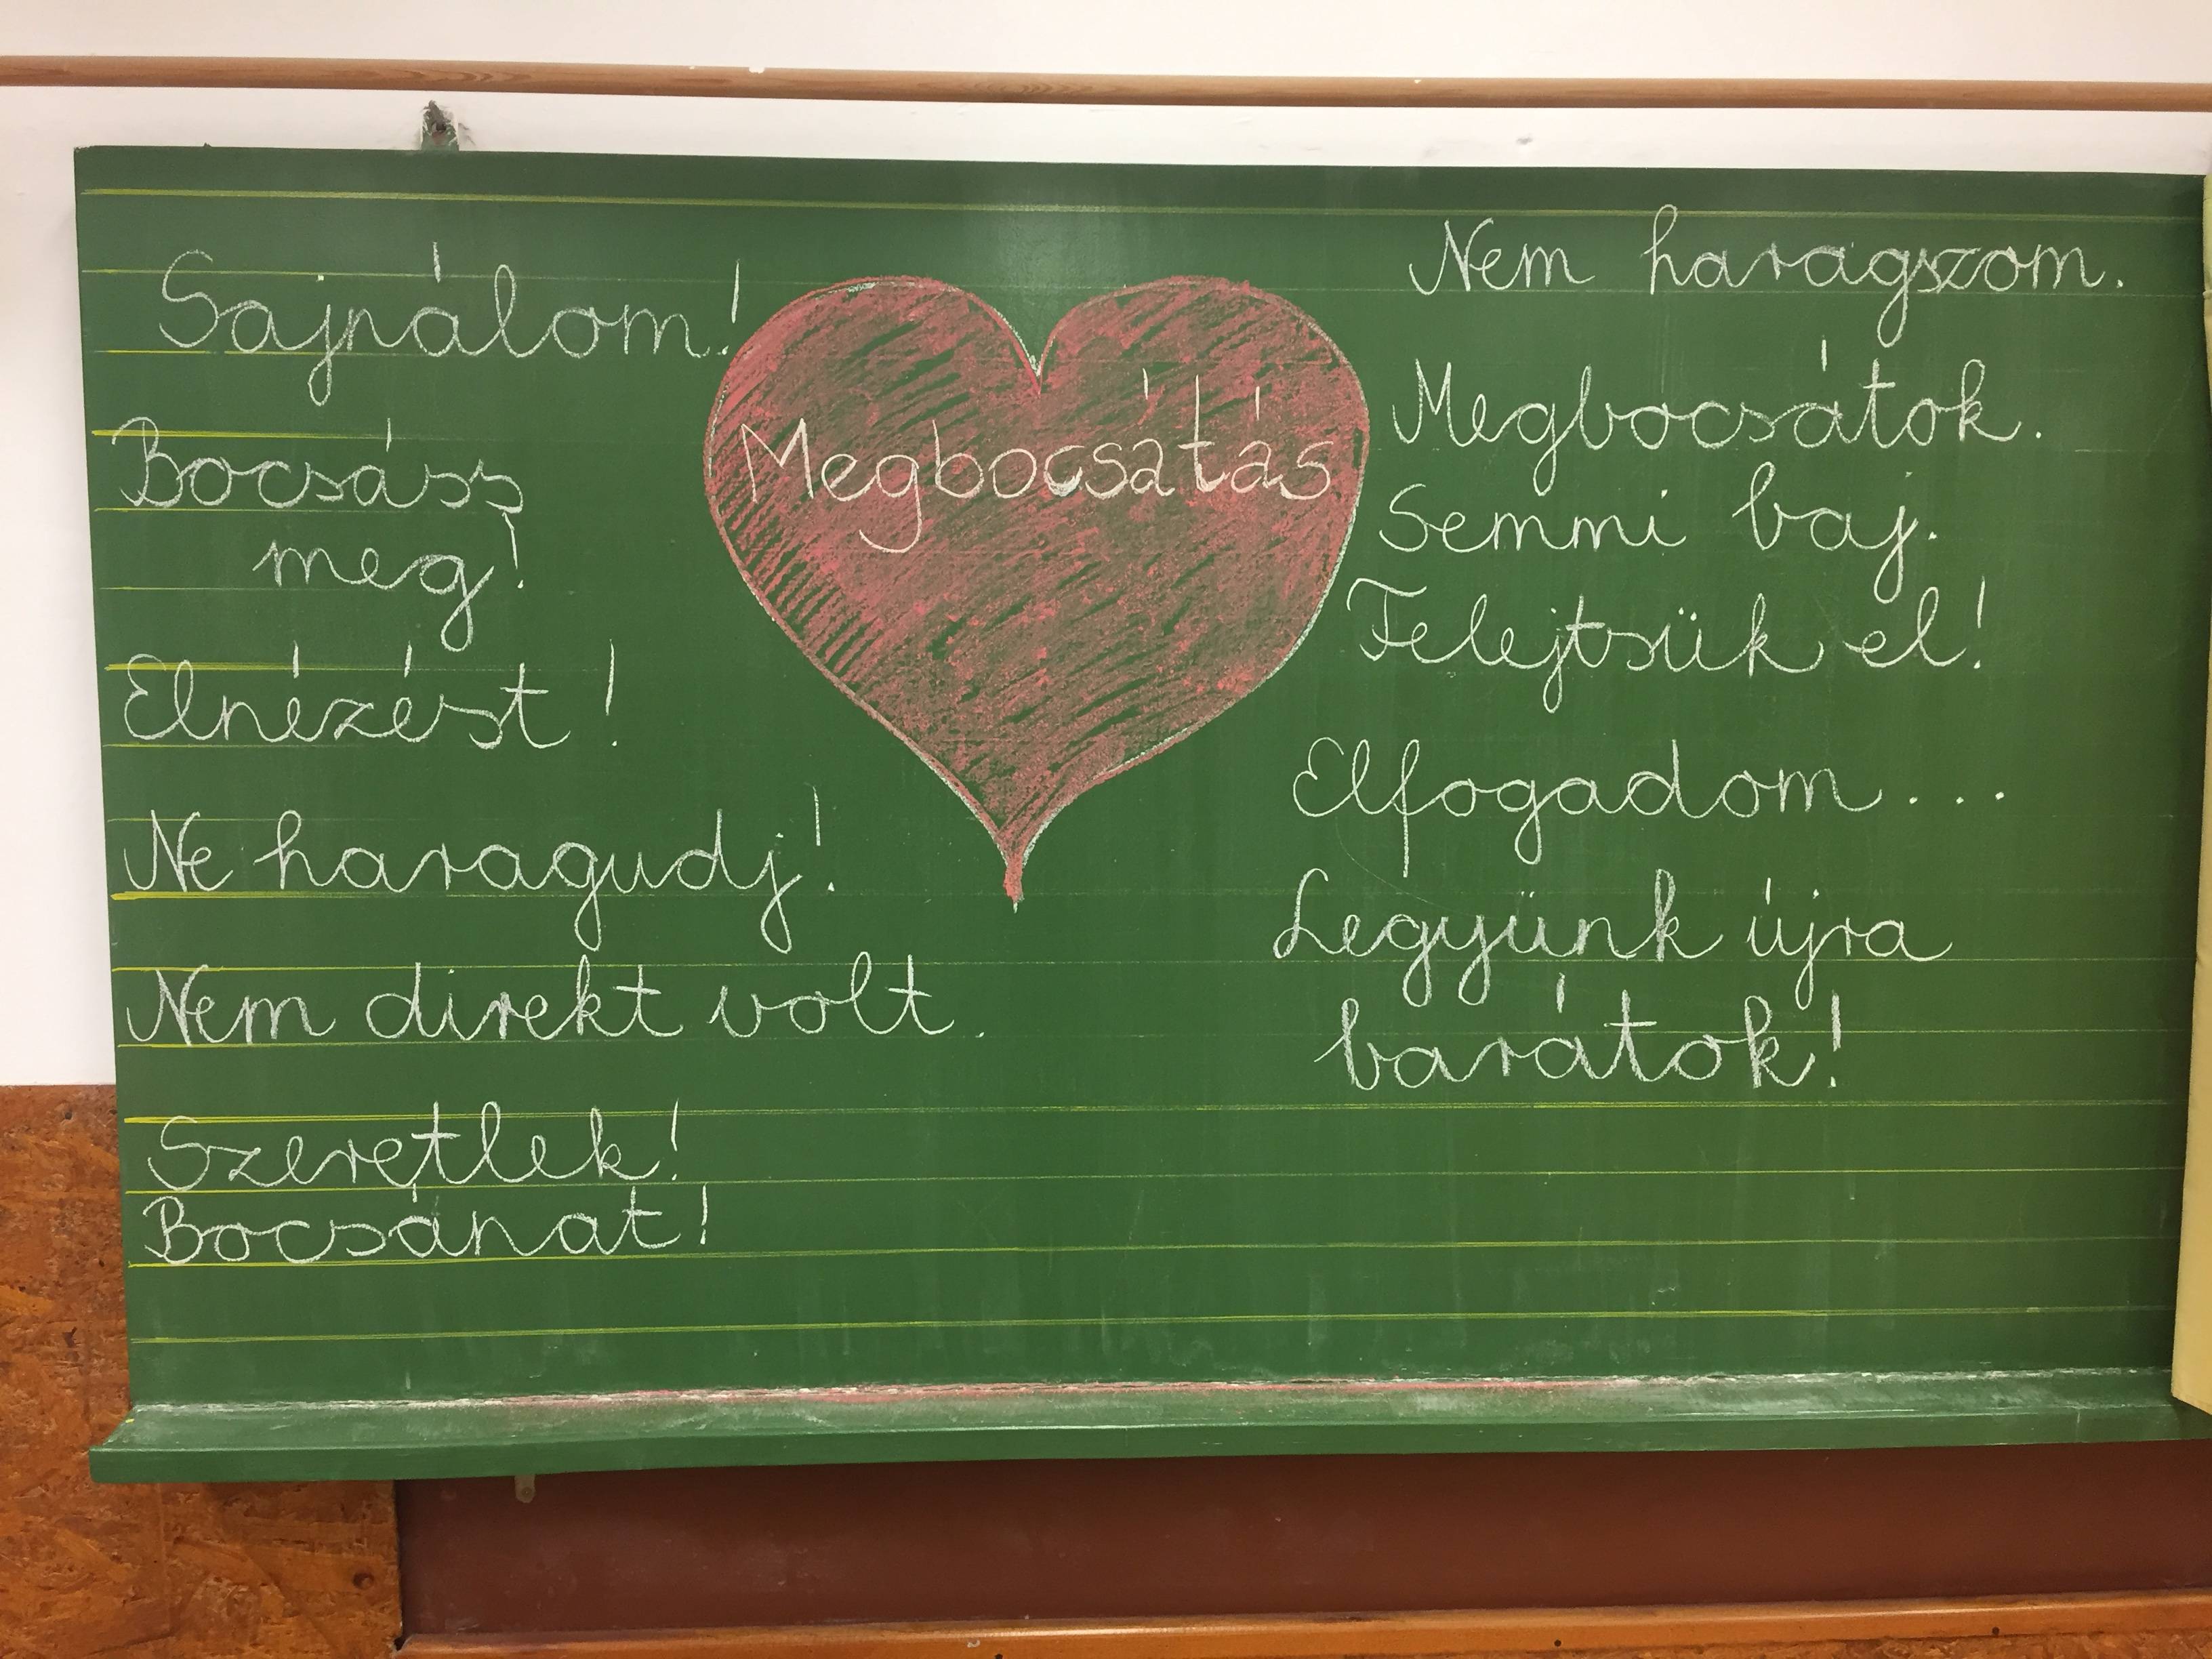 Sajnálom!
Bocsáss
meg!
Elnézést!
Ne haragudj!
Nem direkt volt.
Szeretlek!
Bocsánat!
Megbocsátás
Nem haragszom.
Megbocsátok.
Semmi baj.
Felejtsük el!
Elfogadom...
Legyünk újra
barátok!